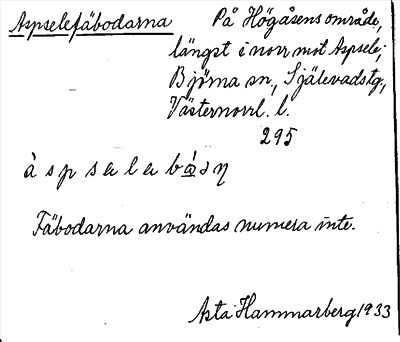 Aspselefäbodarna På Högåsens område,
längst i norr mot Aspsele;
Björna sn., Själevadstg.,
Västernorrl. l.
295
Fäbodarna användas numera inte.
Asta Hammarberg 1933